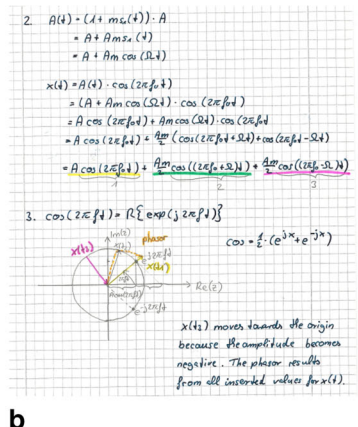 2. A(t) = (1 + ms₁(t)) · A
= A + Ams₁(t)
= A + Am cos(Ωt)
x(t) = A(t) · cos(2πf₀t)
= (A + Am cos(Ωt) · cos(2πf₀t)
= A cos(2πf₀t) + Am cos(Ωt) · cos(2πf₀t)
= A cos(2πf₀t) + Am/2 (cos(2πf₀t+Ωt) + cos(2πf₀t-Ωt)
= A cos(2πf₀t) + Am/2 cos((2πf₀+Ω)t) + Am/2 cos((2πf₀-Ω)t)
1 2 3
3. cos(2πft) = R{exp(j2πft)}
Im(z)
phasor
cos = 1/2 · (e^jx + e^-jx)
x(t₂)
x(t₁)
e^j2πft
Re(z)
e^-j2πft
x(t₂) moves towards the origin
because the amplitude becomes
negative. The phasor results
from all inserted values for x(t).
b